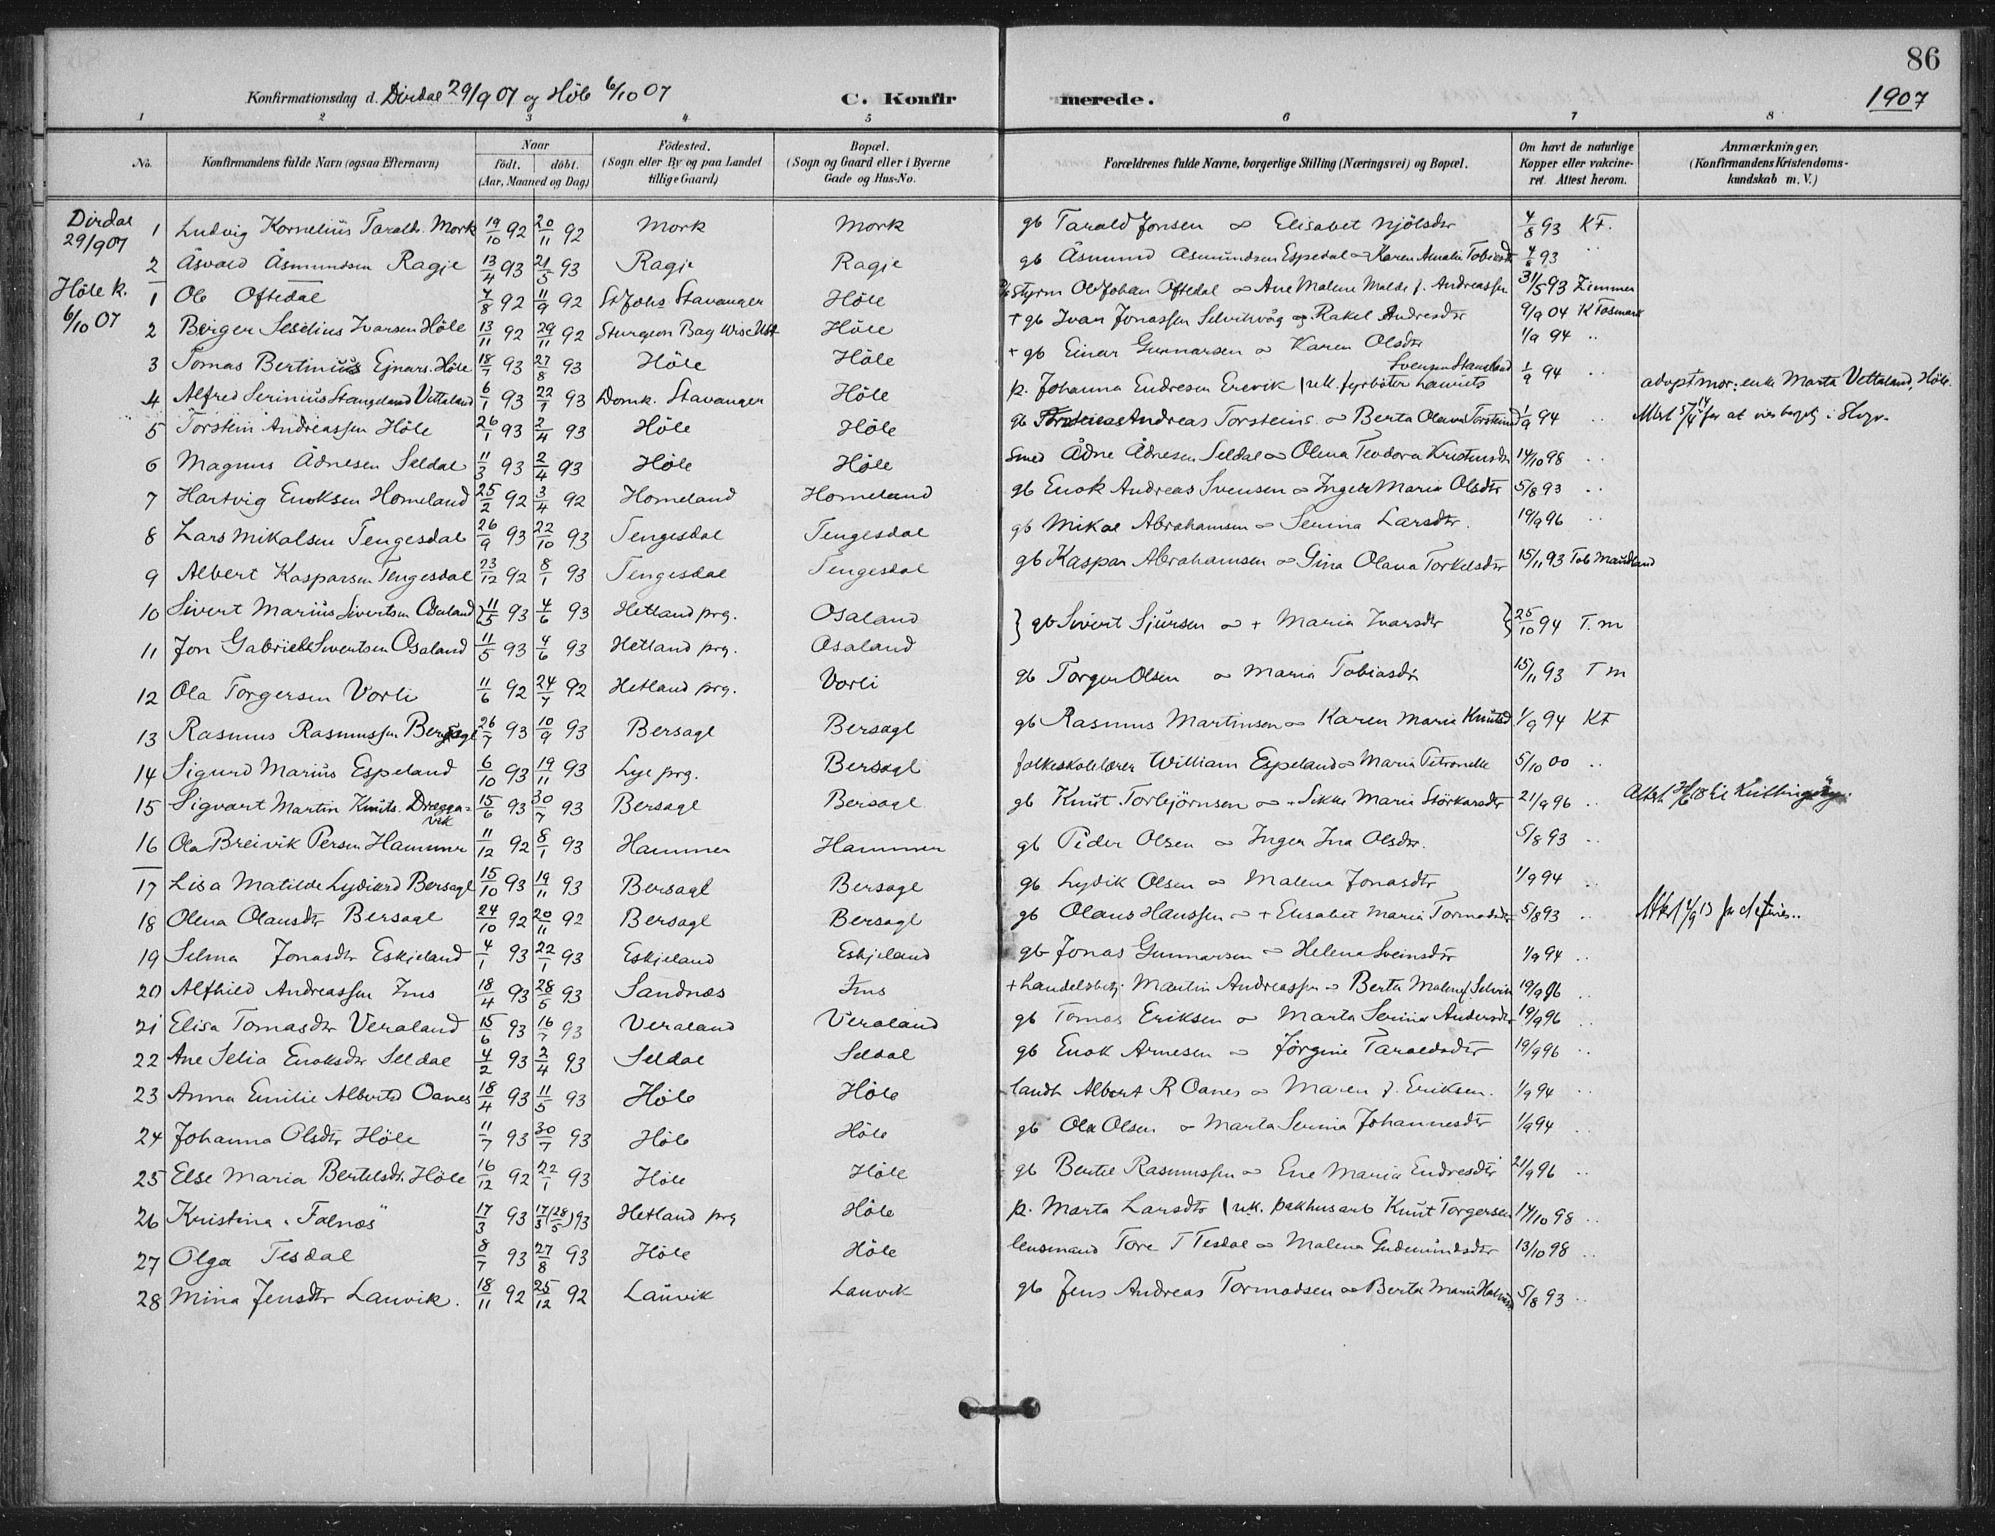 86
1907
Konfirmationsdag d. Dirdal 29/9 07 og Høle 6/10 07 C. Konfirmerede.
1 2 3 4 5 6 7 8
No. Konfirmandens fulde Navn (ogsaa Efternavn) Naar født. døbt. (Aar, Maaned og Dag) Fødested. (Sogn eller By og paa Landet tillige Gaard) Bopæl. (Sogn og Gaard eller i Byerne Gade og Hus-No. Forældrenes fulde Navne, borgerlige Stilling (Næringsvei) og Bopæl. Om havt de naturlige Kopper eller vakcineret. Attest herom. Anmærkninger, (Konfirmandens Kristendomskundskab m. V.)
Dirdal 29/9 07
1 Ludvig Kornelius Taralds. Mork 19/10 92 20/11 92 Mork Mork gb Tarald Jonsen ∞ Elisabet Njølsdtr 4/8 93 KF.
2 Åsvald Åsmundsen Ragje 13/4 93 21/5 93 Ragje Ragje gb Åsmund Asmundsen Espedal ∞ Karen Amalie Tobiasdt 4/8 93 "
Høle k. 6/10 07
1 Ole Oftedal 7/8 92 11/9 92 St Johs Stavanger Høle Styrm Ole Johan Oftedal ∞ Ane Malene Malde f. Andreassen 31/5 93 Zimmer
2 Børger Selelius Ivarsen Høle 13/11 92 29/11 92 Sturgeon Bay Wisc Ust Høle + gb Ivar Jonassen Selvikvåg og Rakel Andresdtr 9/9 04 K Fosmark
3 Tomas Bertinius Ejnars. Høle 18/7 93 27/8 93 Høle Høle + gb Einar Gunnarsen ∞ Karen Olsdtr 1/9 94 ..
4 Alfred Serinius Stangeland Vettaland 6/1 93 22/1 93 Domk. Stavanger Høle p. Johanna Endresen Erevik / u.k. fyrbøter Lauuits Svensen Stangeland 1/9 94 .. adoptmor: enke Marta Vettaland, Høle.
5 Torstein Andreassen Høle 26/1 93 2/4 93 Høle Høle gb Andreas Torsteins. ∞ Berta Olava Torsteind 1/9 94 ..
6 Magnus Ådnesen Seldal 11/3 93 2/4 93 Høle Høle Smed Ådne Ådnesen Seldal ∞ Olena Teodora Kristensdtr 14/10 98 ..
7 Hartvig Enoksen Homeland 25/2 92 3/4 92 Homeland Homeland gb Enok Andreas Svensen ∞ Inger Maria Olsdtr 5/8 93 ..
8 Lars Mikalsen Tengesdal 26/9 93 22/10 93 Tengesdal Tengesdal gb Mikal Abrahamsen ∞ Serina Larsdtr. 19/9 96 ..
9 Albert Kasparsen Tengesdal 23/12 92 8/1 93 Tengesdal Tengesdal gb Kaspar Abrahamsen ∞ Gina Olava Torkelsdtr 15/11 93 Tob Maudland
10 Sivert Marius Sivertsen Osaland } 11/5 93 4/6 93 Hetland prg. Osaland } gb Sivert Sjursen ∞ + Maria Ivarsdtr } 25/10 94 T. m
11 Jon Gabriel Sivertsen Osaland 11/5 93 4/6 93 Hetland prg. Osaland
12 Ola Torgersen Vorli 11/6 92 24/7 92 Hetland prg. Vorli gb Torger Olsen ∞ Maria Tobiasdtr 15/11 93 T m
13 Rasmus Rasmussen Bersagl 26/7 93 10/9 93 Bersagl Bersagl gb Rasmus Martinsen ∞ Karen Maria Knutsd 1/9 94 KF
14 Sigurd Marius Espeland 6/10 93 19/11 93 Lye prg. Bersagl folkeskolelærer William Espeland ∞ Maria Petronelle 5/10 00 ..
15 Sigvart Martin Knuts. Draggavik 15/6 93 30/7 93 Bersagl Bersagl gb Knut Torbjørnsen ∞ Sikke Maria Størkarsdtr 21/9 96 ..
16 Ola Breivik Persen Hammer 11/12 92 8/1 93 Hammer Hammer gb Peder Olsen ∞ Inger Ina Olsdtr. 5/8 93 ..
17 Lisa Matilde Lydiard Bersagl 15/10 93 19/11 93 Bersagl Bersagl gb Lydik Olsen ∞ Malena Jonasdtr 1/9 94 ..
18 Olena Olausdtr Bersagl 24/10 92 20/11 92 Bersagl Bersagl gb Olaus Hanssen ∞ + Elisabet Maria Tormodsdtr 5/8 93 ..
19 Selma Jonasdtr Eskjeland 4/1 93 22/1 93 Eskjeland Eskjeland gb Jonas Gunnarsen ∞ Helena Sveinsdtr 1/9 94 ..
20 Alfhild Andreassen Ims 18/4 93 28/5 93 Sandnæs Ims + handelsbetj. Martin Andreassen ∞ Berta Malene f. Selvik 19/9 96 ..
21 Elisa Tomasdtr Veraland 15/6 93 16/7 93 Veraland Veraland gb Tomas Eriksen ∞ Marta Serina Andersdtr 19/9 96 ..
22 Ane Selia Enoksdtr Seldal 4/2 93 2/4 93 Seldal Seldal gb Enok Arnesen ∞ Jørgine Taraldsdtr 19/9 96 ..
23 Anna Emilie Albertd Oanes 18/4 93 11/5 93 Høle Høle landh Albert R Oanes ∞ Maren f. Eriksen. 1/9 94 ..
24 Johanna Olsdtr Høle 11/7 93 30/7 93 Høle Høle gb Ola Olsen ∞ Marta Serina Johannesdtr 1/9 94 ..
25 Else Maria Bertelsdtr. Høle 16/12 92 22/1 93 Høle Høle gb Bertel Rasmussen ∞ Ene Maria Endresdtr 21/9 96 ..
26 Kristina "Falnæs" 17/3 93 17/3 (28/5) 93 Hetland prg Høle p. Marta Larsdtr / u.k. pakhusarb Knut Torgersen 14/10 98 ..
27 Olga Tesdal 8/7 93 27/8 93 Høle Høle lensmand Tore T Tesdal ∞ Malena Gudmundsdtr 13/10 98 ..
28 Mina Jensdtr Lauvik. 18/11 92 25/12 92 Lauvik Lauvik gb Jens Andreas Tormodsen ∞ Berta Maria 5/8 93 ..